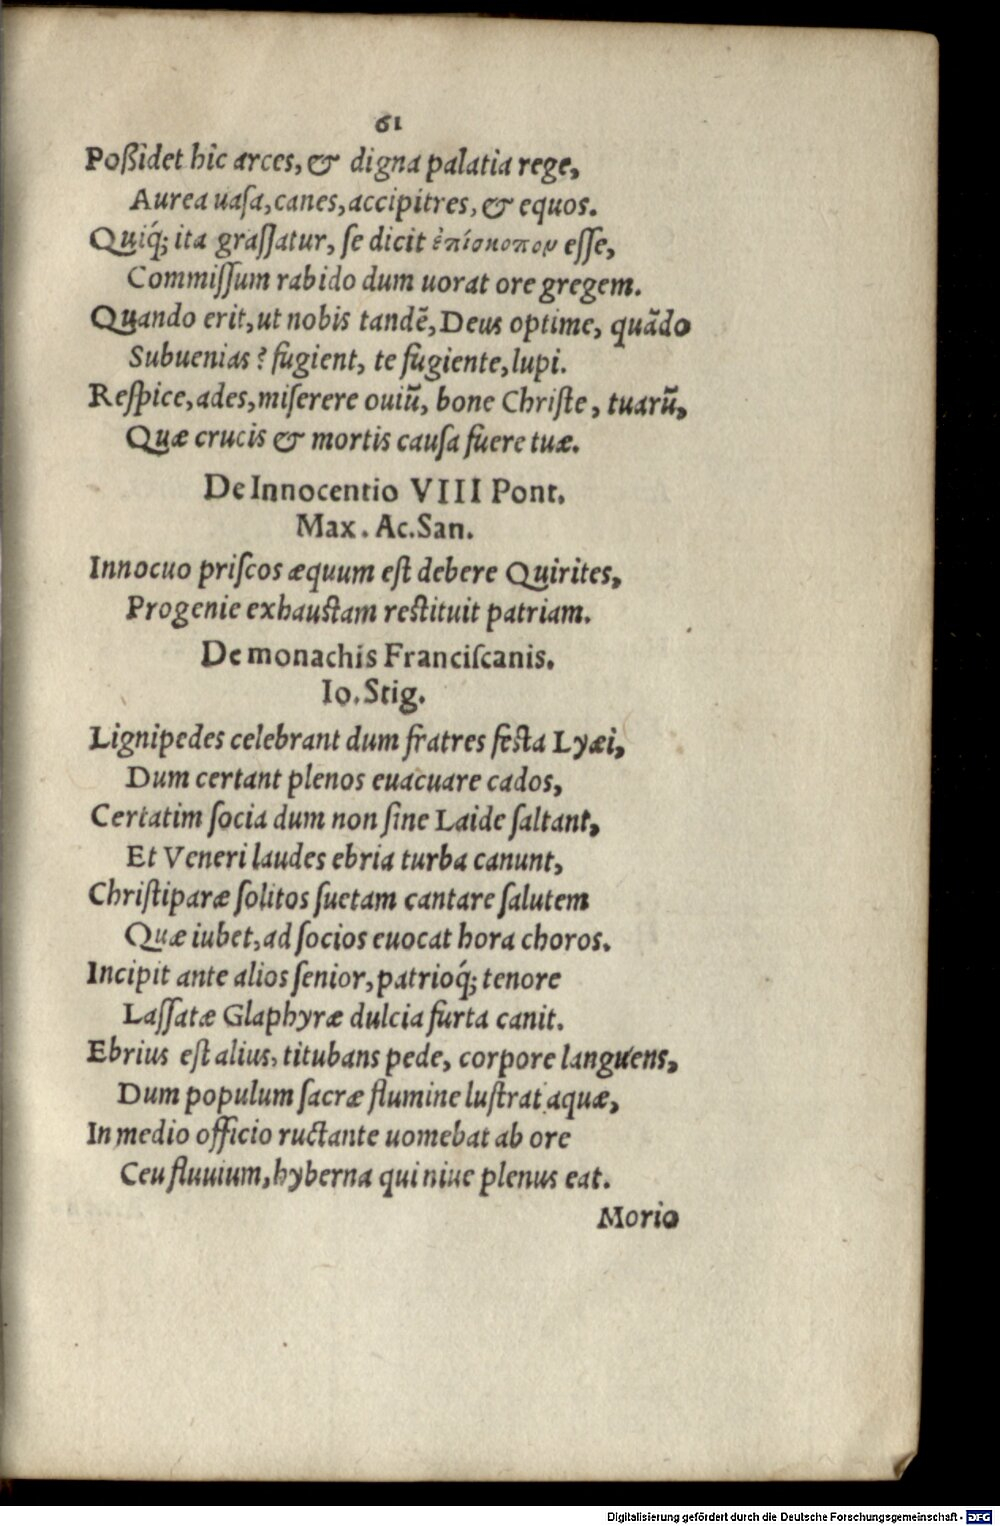 61
Poßidet hic arces, & digna palatia rege,
Aurea uaſa, canes, accipitres, & equos.
Quiq́; ita graſſatur, ſe dicit ἐπίσκοπον eſſe,
Commiſſum rabido dum uorat ore gregem.
Quando erit, ut nobis tandẽ, Deus optime, quãdo
Subuenias? fugient, te fugiente, lupi.
Reſpice, ades, miſerere ouiũ, bone Chriſte, tuarũ,
Quæ crucis & mortis cauſa fuere tuæ.
De Innocentio VIII Pont.
Max. Ac. San.
Innocuo priſcos æquum eſt debere Quirites,
Progenie exhauſtam reſtituit patriam.
De monachis Franciſcanis.
Io. Stig.
Lignipedes celebrant dum fratres feſta Lyæi,
Dum certant plenos euacuare cados,
Certatim ſocia dum non ſine Laide ſaltant,
Et Veneri laudes ebria turba canunt,
Chriſtiparæ ſolitos ſuetam cantare ſalutem
Quæ iubet, ad ſocios euocat hora choros.
Incipit ante alios ſenior, patrioq́; tenore
Laſſatæ Glaphyræ dulcia furta canit.
Ebrius eſt alius, titubans pede, corpore languens,
Dum populum ſacræ flumine luſtrat aquæ,
In medio officio ructante uomebat ab ore
Ceu fluuium, hyberna qui niue plenus eat.
Morio
Digitalisierung gefördert durch die Deutsche Forschungsgemeinschaft - DFG